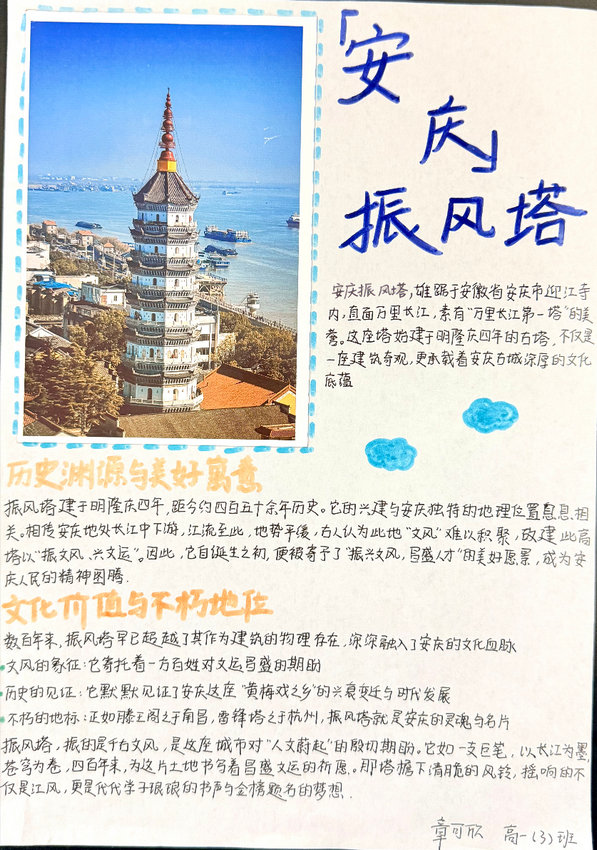 「安
庆」
振风塔
安庆振风塔,雄踞于安徽省安庆市迎江寺
内,直面万里长江,素有“万里长江第一塔”的美
誉。这座塔始建于明隆庆四年的古塔,不仅是
一座建筑奇观,更承载着安庆古城深厚的文化
底蕴
历史渊源与美好寓意
振风塔建于明隆庆四年,距今约四百五十余年历史。它的兴建与安庆独特的地理位置息息相
关。相传安庆地处长江中下游,江流至此,地势平缓,古人认为此地“文风”难以积聚,故建此高
塔以“振文风、兴文运”。因此,它自诞生之初,便被寄予了“振兴文风,昌盛人才”的美好愿景,成为安
庆人民的精神图腾.
文化价值与不朽地位
数百年来,振风塔早已超越了其作为建筑的物理存在,深深融入了安庆的文化血脉
文风的象征:它寄托着一方百姓对文运昌盛的期盼
历史的见证:它默默见证了安庆这座“黄梅戏之乡”的兴衰变迁与时代发展
不朽的地标:正如滕王阁之于南昌,雷锋塔之于杭州,振风塔就是安庆的灵魂与名片
振风塔,振的是千古文风,是这座城市对“人文蔚起”的殷切期盼。它如一支巨笔,以长江为墨,
苍穹为卷,四百年来,为这片土地书写着昌盛文运的祈愿。那塔檐下清脆的风铃,摇响的不
仅是江风,更是代代学子琅琅的书声与金榜题名的梦想.
章可欣 高一(3)班